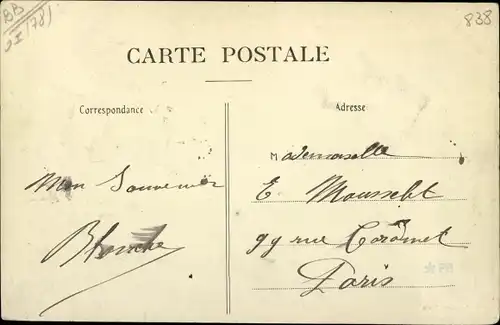 BB
(78)
838
CARTE POSTALE
Correspondance
Adresse
Mon Souvenir
Blanche
Mademoiselle
E Mousselet
99 rue
Paris